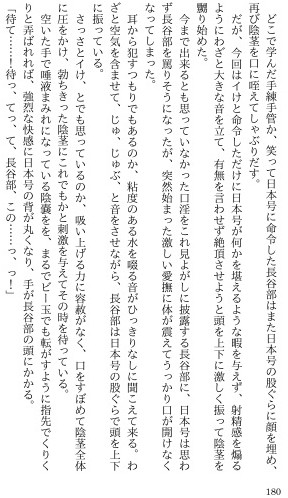 どこで学んだ手練手管か、笑って日本号に命令した長谷部はまた日本号の股ぐらに顔を埋め、
再び陰茎を口に咥えてしゃぶりだす。
だが、今回はイけと命令しただけに日本号が何かを堪えるような暇を与えず、射精感を煽る
ようにわざと大きな音を立て、有無を言わせず絶頂させようと頭を上下に激しく振って陰茎を
嬲り始めた。
今まで出来るとも思っていなかった口淫をこれ見よがしに披露する長谷部に、日本号は思わ
ず長谷部を罵りそうになったが、突然始まった激しい愛撫に体が震えてうっかり口が開けなく
なってしまった。
耳から犯すつもりでもあるのか、粘度のある水を啜る音がひっきりなしに聞こえて来る。わ
ざと空気を含ませて、じゅ、じゅぶ、と音をさせながら、長谷部は日本号の股ぐらで頭を上下
に振っている。
さっさとイけ、とでも思っているのか、吸い上げる力に容赦がなく、口をすぼめて陰茎全体
に圧をかけ、勃ちきった陰茎にこれでもかと刺激を与えてその時を待っている。
空いた手で唾液まみれになっている陰嚢をを、まるでビー玉でも転がすように指先でくりく
りと弄ばれば、強烈な快感に日本号の背が丸くなり、手が長谷部の頭にかかる。
「待て……！待っ、てっ、て、長谷部、この……っ、っ！」
180